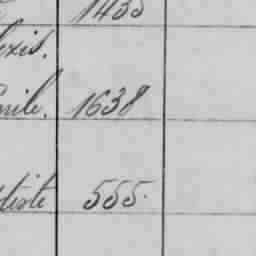 1435
exis.
mile. 1638
tiste 555.